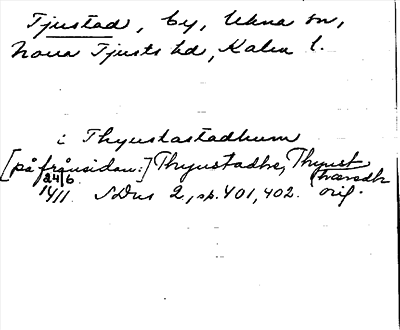 Tjustad, by, Ukna sn,
Norra Tjusts hd, Kalm l.
i Thyustastadhum
[på frånsidan:] Thyustadhe, Thyust
hæradh
24/6
1411. SDns 2, sp. 401, 402. orig.